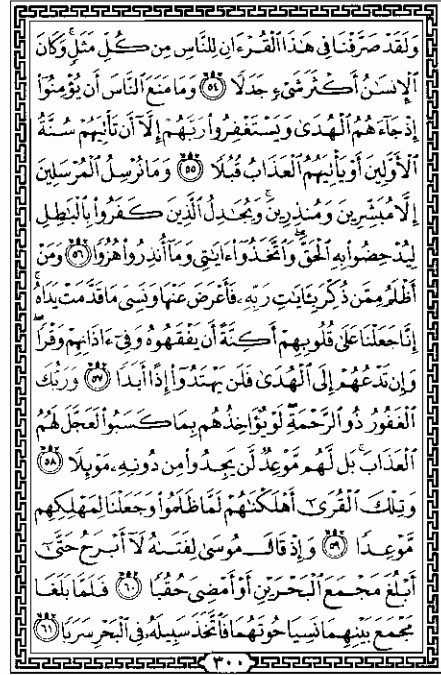 وَلَقَدْ صَرَّفْنَا فِي هَٰذَا ٱلْقُرْءَانِ لِلنَّاسِ مِن كُلِّ مَثَلٍ ۚ وَكَانَ
ٱلْإِنسَٰنُ أَكْثَرَ شَىْءٍ جَدَلًا ﴿٥٤﴾ وَمَا مَنَعَ ٱلنَّاسَ أَن يُؤْمِنُوٓا۟
إِذْ جَآءَهُمُ ٱلْهُدَىٰ وَيَسْتَغْفِرُوا۟ رَبَّهُمْ إِلَّآ أَن تَأْتِيَهُمْ سُنَّةُ
ٱلْأَوَّلِينَ أَوْ يَأْتِيَهُمُ ٱلْعَذَابُ قُبُلًا ﴿٥٥﴾ وَمَا نُرْسِلُ ٱلْمُرْسَلِينَ
إِلَّا مُبَشِّرِينَ وَمُنذِرِينَ ۚ وَيُجَٰدِلُ ٱلَّذِينَ كَفَرُوا۟ بِٱلْبَٰطِلِ
لِيُدْحِضُوا۟ بِهِ ٱلْحَقَّ ۖ وَٱتَّخَذُوٓا۟ ءَايَٰتِى وَمَآ أُنذِرُوا۟ هُزُوًا ﴿٥٦﴾ وَمَنْ
أَظْلَمُ مِمَّن ذُكِّرَ بِـَٔايَٰتِ رَبِّهِۦ فَأَعْرَضَ عَنْهَا وَنَسِىَ مَا قَدَّمَتْ يَدَاهُ ۚ
إِنَّا جَعَلْنَا عَلَىٰ قُلُوبِهِمْ أَكِنَّةً أَن يَفْقَهُوهُ وَفِىٓ ءَاذَانِهِمْ وَقْرًا ۖ
وَإِن تَدْعُهُمْ إِلَى ٱلْهُدَىٰ فَلَن يَهْتَدُوٓا۟ إِذًا أَبَدًا ﴿٥٧﴾ وَرَبُّكَ
ٱلْغَفُورُ ذُو ٱلرَّحْمَةِ ۖ لَوْ يُؤَاخِذُهُم بِمَا كَسَبُوا۟ لَعَجَّلَ لَهُمُ
ٱلْعَذَابَ ۚ بَل لَّهُم مَّوْعِدٌ لَّن يَجِدُوا۟ مِن دُونِهِۦ مَوْئِلًا ﴿٥٨﴾
وَتِلْكَ ٱلْقُرَىٰٓ أَهْلَكْنَٰهُمْ لَمَّا ظَلَمُوا۟ وَجَعَلْنَا لِمَهْلِكِهِم
مَّوْعِدًا ﴿٥٩﴾ وَإِذْ قَالَ مُوسَىٰ لِفَتَىٰهُ لَآ أَبْرَحُ حَتَّىٰٓ
أَبْلُغَ مَجْمَعَ ٱلْبَحْرَيْنِ أَوْ أَمْضِىَ حُقُبًا ﴿٦٠﴾ فَلَمَّا بَلَغَا
مَجْمَعَ بَيْنِهِمَا نَسِيَا حُوتَهُمَا فَٱتَّخَذَ سَبِيلَهُۥ فِى ٱلْبَحْرِ سَرَبًا ﴿٦١﴾
٣٠٠